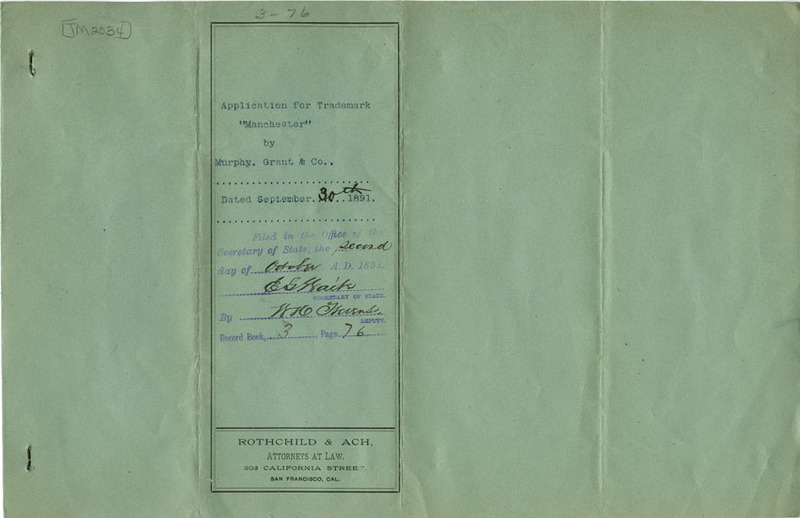 3-76
TM2034
Application for Trademark
"Manchester"
by
Murphy, Grant & Co.,
Dated September 30th 1891.
Filed in the Office of the
Secretary of State, the second
day of October A.D. 1891.
E G Waite
SECRETARY OF STATE.
By W H
DEPUTY.
Record Book, 3, Page 76
ROTHCHILD & ACH,
ATTORNEYS AT LAW,
303 CALIFORNIA STREET,
SAN FRANCISCO, CAL.